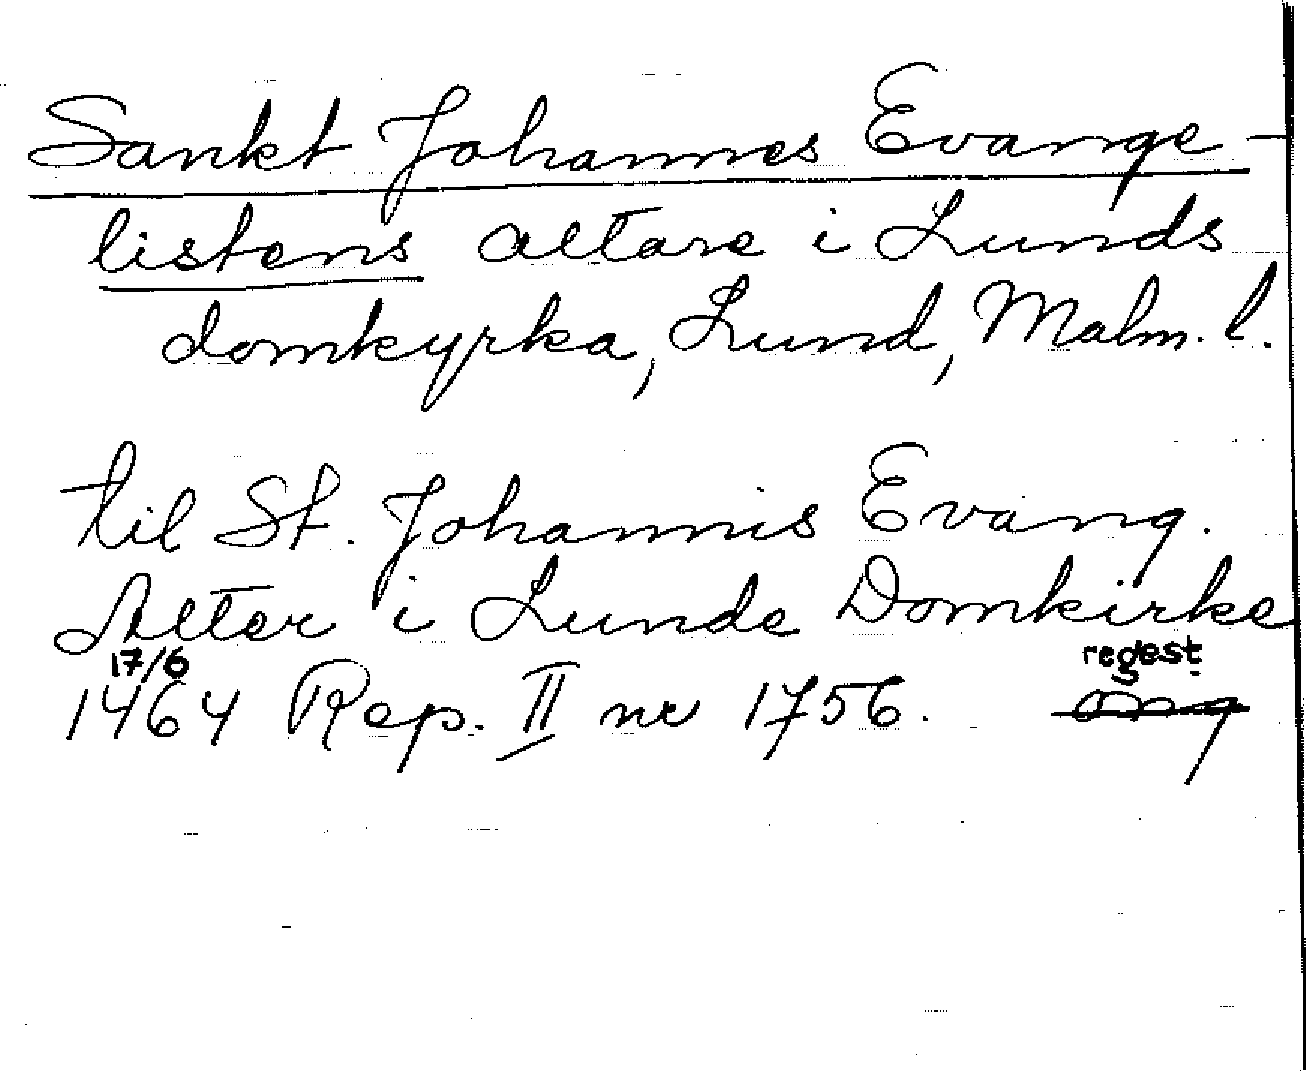 Sankt Johannes Evange-
listens altare i Lunds
domkyrka, Lund, Malm. l.
til St. Johannis Evang.
Alter i Lunde Domkirke
17/6 regest
1464 Rep. II nr 1756. omg